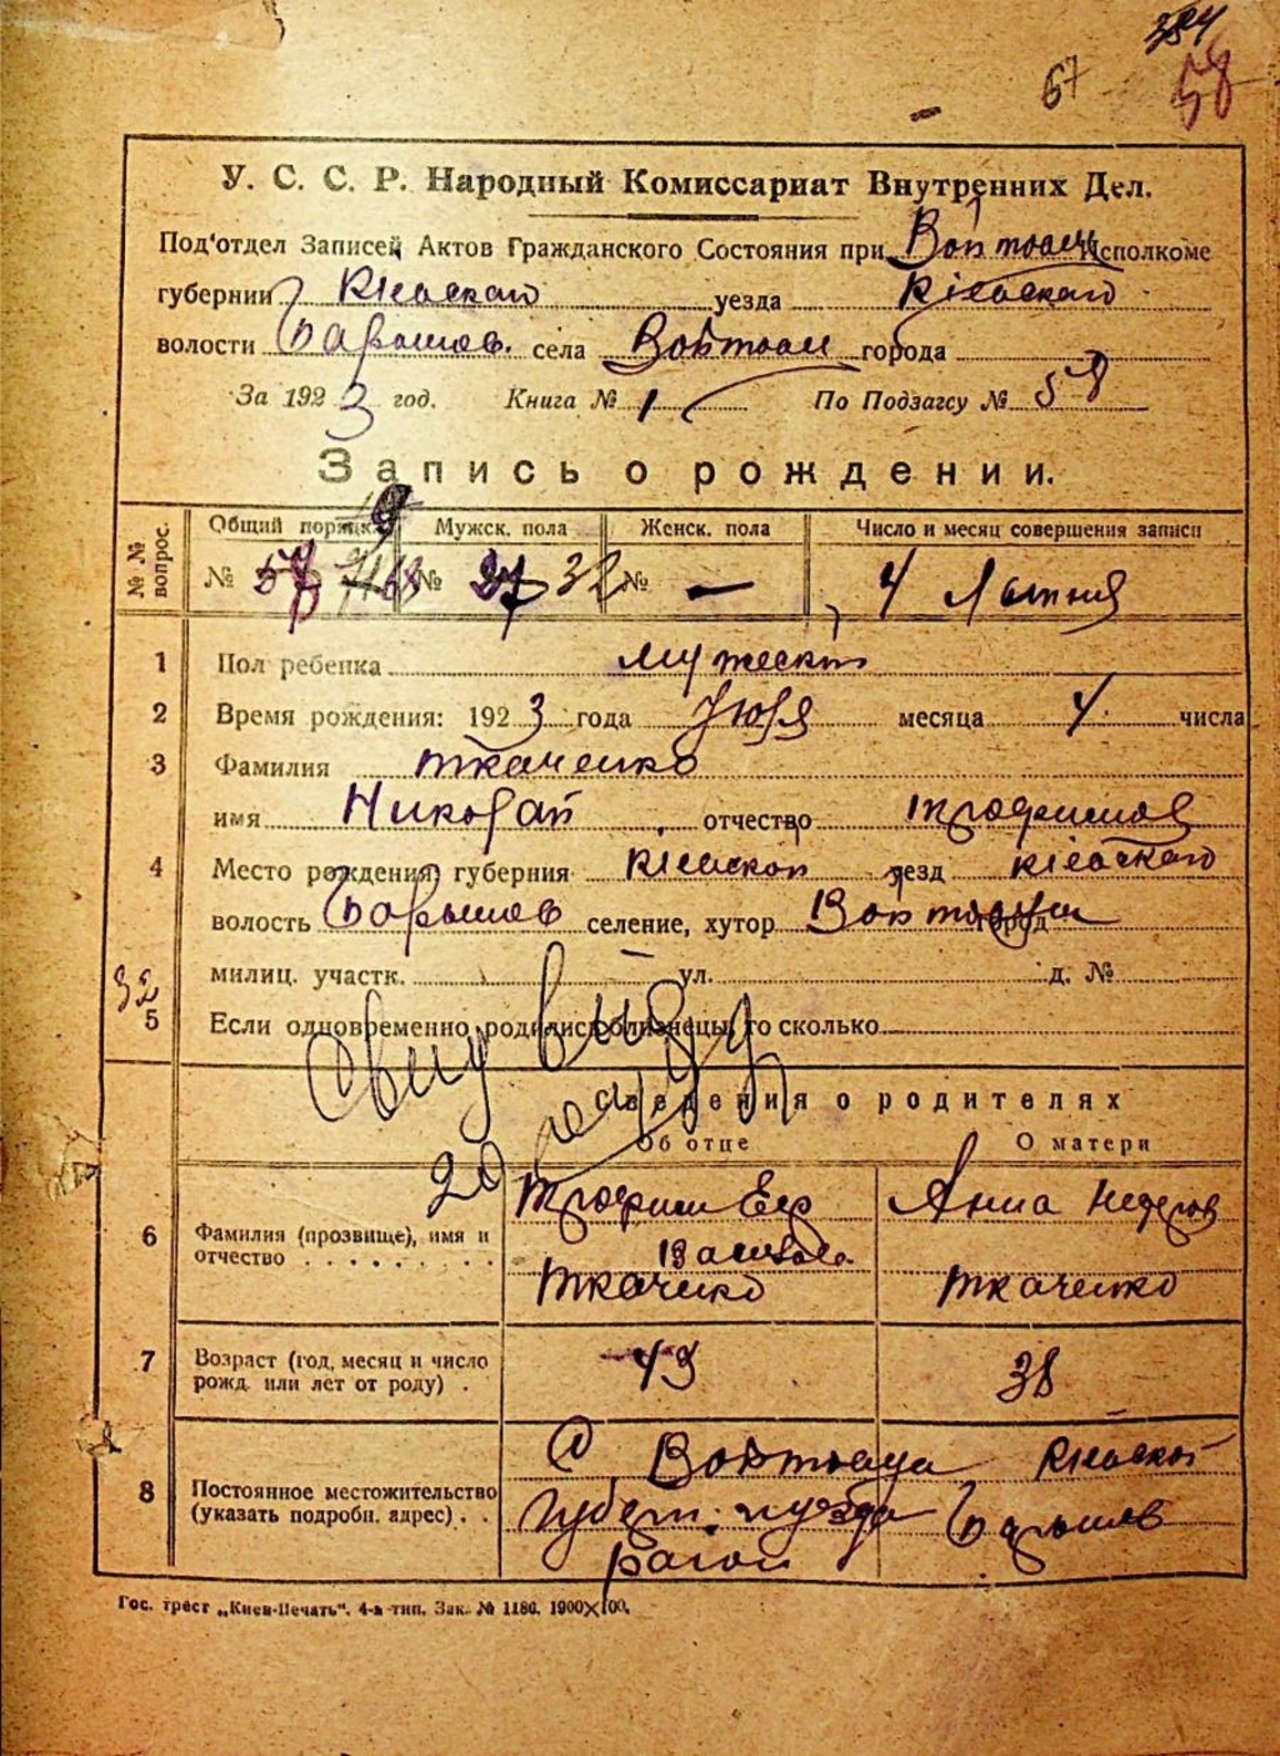 384
67 58
У. С. С. Р. Народный Комиссариат Внутренних Дел.
Под'отдел Записей Актов Гражданского Состояния при Исполкоме
губернии Кіевскаго уезда Кіевскаго
волости Барышев. села города
За 1923 год. Книга № 1 По Подзагсу № 58
Запись о рождении.
№ № вопрос. Общий поряд. Мужск. пола Женск. пола Число и месяц совершения записи
№ 58 № 27 32 № — 4 Липня
1 Пол ребенка мужеский
2 Время рождения: 1923 года месяца 4 числа
3 Фамилия Ткаченко
имя Николай отчество Трофимов
4 Место рождения: губерния Кіевской уезд Кіевскаго
волость Барышев селение, хутор город
милиц. участк. ул. д. №
32
5 Если одновременно родились близнецы, то сколько
Сведения о родителях
Об отце О матери
6 Фамилия (прозвище), имя и отчество
Трофим Анна
Ткаченко Ткаченко
7 Возраст (год, месяц и число рожд. или лет от роду) . 49 38
8 Постоянное местожительство (указать подробн. адрес) . .
С Кіевской
Губерн. и уезда Барышев
район
Гос. трест „Киев-Печать“. 4-я тип. Зак. № 1186. 1900×100.